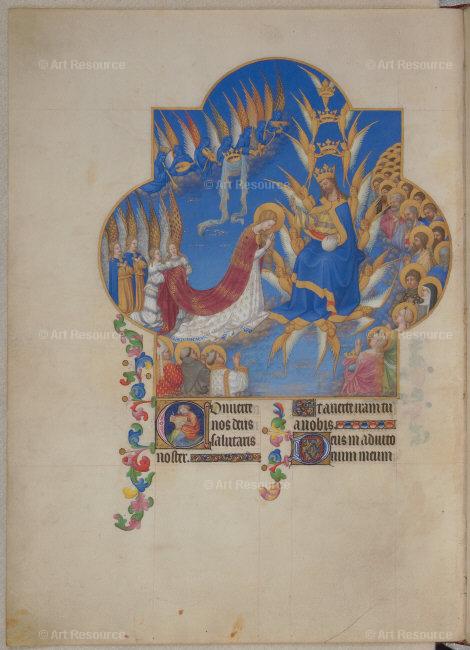 © Art Resource © Art Resource
© Art Resource
© Art Resource © Art Resource
Conuerte
nos deus
salutaris
noster.
Et auerte iram tu
a nobis.
Deus in adiuto
rium meum
© Art Resource
© Art Resource © Art Resource